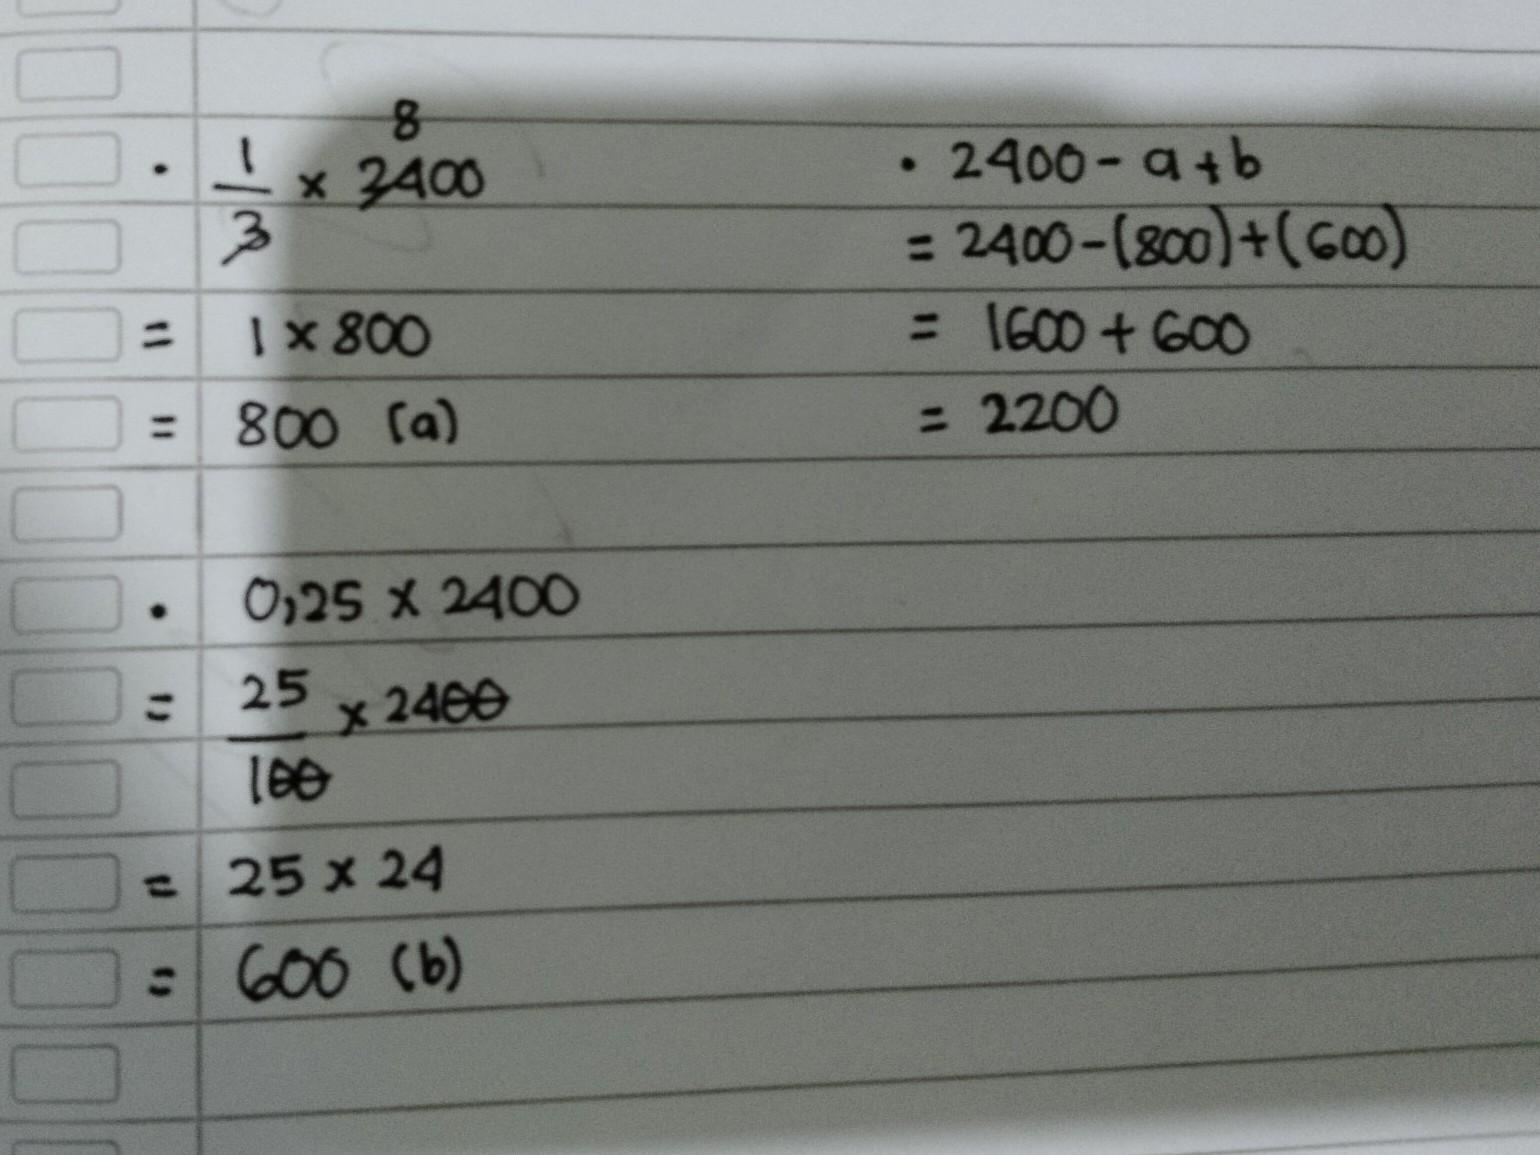 8
· 1/3 × 2400
= 1 × 800
= 800 (a)
· 0,25 × 2400
= 25/100 × 2400
= 25 × 24
= 600 (b)
· 2400 - a + b
= 2400 - (800) + (600)
= 1600 + 600
= 2200